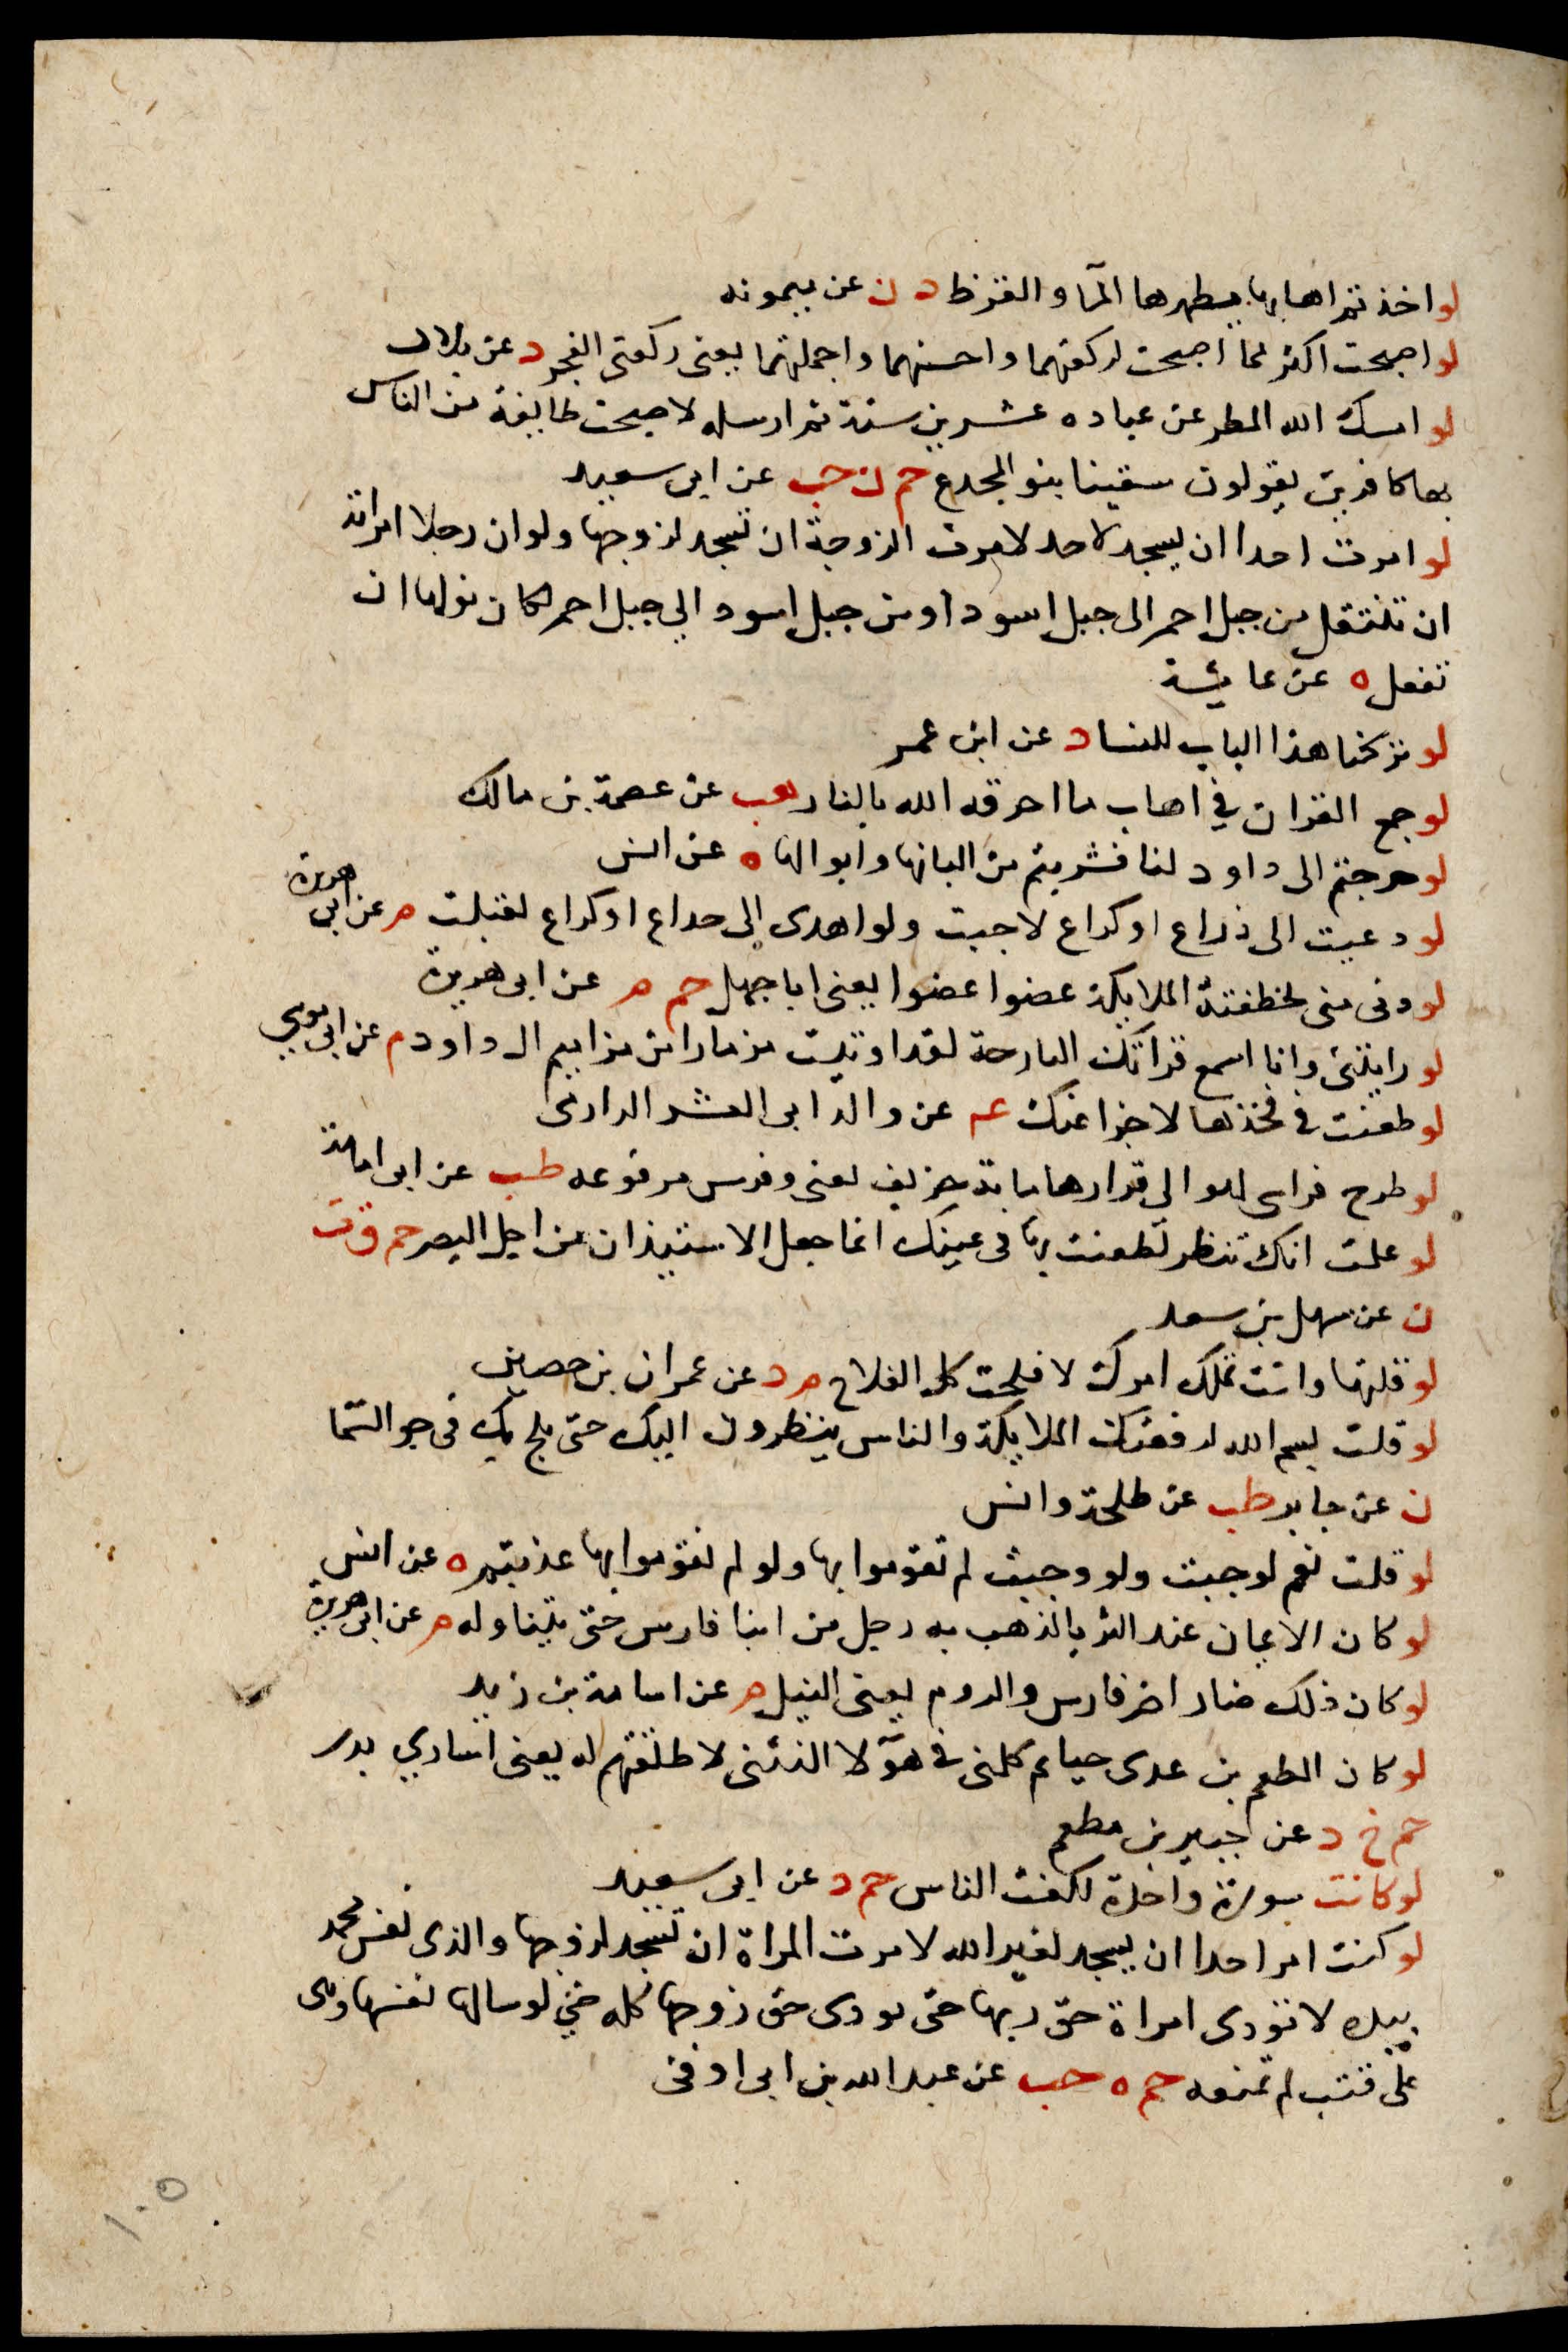 لو اخذتم اهابها يطهرها المآ والقرظ د ن عن ميمونه
لو اصبحت اكثر مما اصبحت لركعتهما واحسنهما واجملتهما يعنى ركعتى الفجر د عن بلال
لو امسك الله المطر عن عباده عشرين سنة ثم ارسله لاصبحت طايفة من الناس
بها كافرين يقولون سقينا بنو المجدع حم ن حب عن ابى سعيد
لو امرت احدا ان يسجد لاحد لامرت الزوجة ان تسجد لزوجها ولو ان رجلا امراته
ان تنتقل من جبل احمر الى جبل اسود او من جبل اسود الي جبل احمر لكان نولها ان
تفعل ه عن عايشة
لو تركنا هذا الباب للنسا د عن ابن عمر
لو جمع القران في اهاب ما احرقه الله بالنار هب عن عصمة بن مالك
لو خرجتم الى داود لنا فشربتم من البانها وابوالها ه عن انس
لو دعيت الى ذراع او كراع لاجبت ولو اهدى الى ذراع او كراع لقبلت م عن ابى هريرة
لو دنى منى لخطفتة الملايكة عضوا عضوا يعنى ابا جهل حم م عن ابى هريرة
لو رايتنى وانا اسمع قراتك البارحة لقد اوتيت مزمارا من مزامير ال داود م عن ابى موسي
لو طعنت في فخذها لاجزا عنك عم عن والد ابى العشر الدارمى
لو طرح فراس لهو الى قرارها ماية خريف يعنى وفرس مرفوعه طب عن ابى امامة
لو علمت انك تنظر لطعنت بها فى عينك انما جعل الاستيذان من اجل البصر حم ق ت
ن عن سهل بن سعد
لو قلتها وانت تملك امرك لافلحت كل الفلاح م د عن عمران بن حصين
لو قلت بسم الله لرفعتك الملايكة والناس ينظرون اليك حتى يلج بك فى جو السما
ن عن جابر طب عن طلحة وانس
لو قلت نعم لوجبت ولو وجبت لم تقوموا بها ولو لم تقوموا بها عذبتم ه عن انس
لو كان الايمان عند الثريا لذهب به رجل من ابنا فارس حتى يتناوله م عن ابى هريرة
لو كان ذلك ضار اضر فارس والروم يعنى الغيل م عن اسامة بن زيد
لو كان المطعم بن عدى حيا ثم كلمنى في هولا النتنى لاطلقتهم له يعنى اسارى بدر
حم خ د عن جبير بن مطعم
لو كانت سورة واحدة لكفت الناس حم د عن ابى سعيد
لو كنت امر احدا ان يسجد لغير الله لامرت المراة ان تسجد لزوجها والذى نفس محمد
بيده لا تودى امراة حق ربها حتى تودى حق زوجها كله حتى لو سالها نفسها وهى
على قتب لم تمنعه حم ه حب عن عبد الله بن ابى اوفى
١٠٥